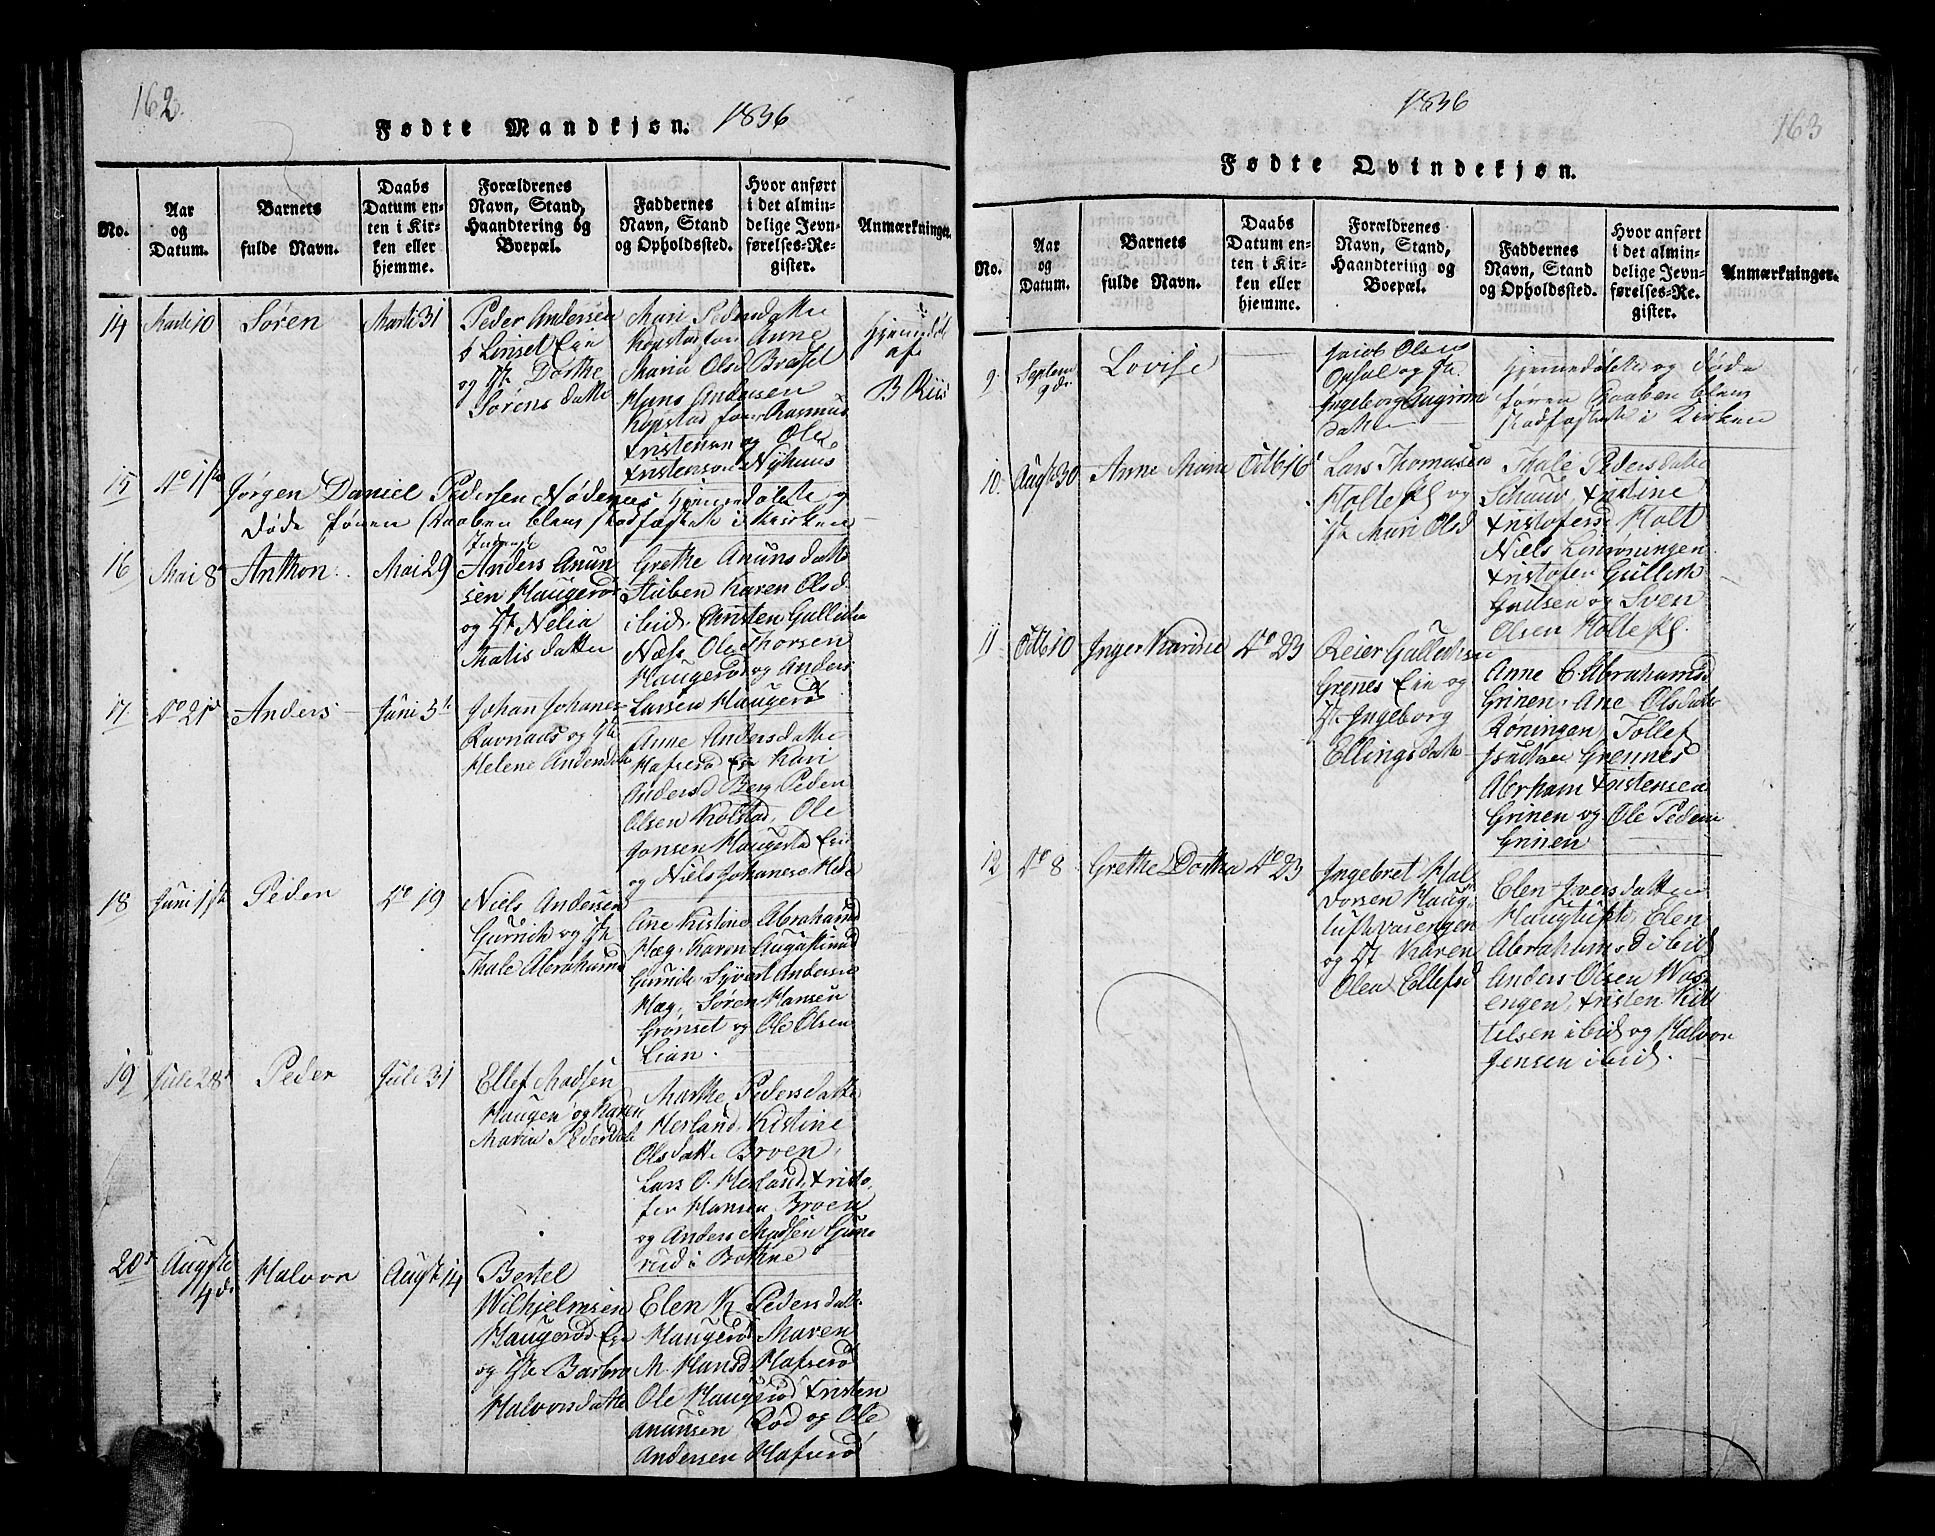 162.
Fødte Mandkjøn. 1836
No.
Aar
og
Datum.
Barnets
fulde Navn.
Daabs
Datum en-
ten i Kir-
ken eller
hjemme.
Forældrenes
Navn, Stand,
Haandtering og
Boepæl.
Faddernes
Navn, Stand
og Opholdssted.
Hvor anført
i det almin-
delige Jevn-
førelses-Re-
gister.
Anmærkninger.
14
Marti 10
Søren
Marti 31
Peder Andersen
Linset Eie
og H. Dorthe
Sørens datte
Mari Pedersdatte
Kopstad Anne
Maria Olsd
Hans Andersen
Kopstad Rasmus
Kristensen og Ole
Kristensen Nyhuus
Hjemmedøbt
af
B Riis
15
Do 1ste
Jørgen Daniel Pedersen Nødenes Hjemmedøbte og
døde føren Daaben blev stadfæstede i Kirken
16
Mai 8de
Anthon
Mai 29
Anders Anun
sen Haugerød
og H. Nelia
Matis datter
Grethe Anuns datte
Karen Olsd
ibid, Christen Gullichs
Næs, Ole Thorsen
Haugerød og Anders
Larsen Haugerød
17.
Do 21de
Anders
Juni 5te
Johan Johanes
Ravnaas og H.
Helene Andersdt
Anne Andersdatte
Hafserød Eie Kari
Andersd Berg Peder
Olsen Kolstad, Ole
Jonsen Haugestad Eie
og Niels Johanese
18
Juni 1ste
Peder
Do 19
Niels Andersen
og H
Thale Abrahamsd
Ane Kistine Abrahamsd
Hæg, Karen
Syvert Andersen
Hæg, Søren Hansen
Grønset og Ole Olsen
Lian.
19
Juli 28de
Peder
Juli 31
Ellef Madsen
Haugen og Karen
Maria Pedersdatte
Marthe Pedersdatte
Herland, Kistine
Olsdatte Broen,
Lars O. Herland, Kristo-
fer Hansen Broen
og Anders Madsen
20de
Augsti
4de
Halvor
Augst 14
Bertel
Wilhjelmsen
Haugerød Eie
og H. Barbro
Halvorsdatte
Elen K Pedersdatte
Haugerød Maren
M. Hansd Hafserød
Ole Haugerød Kristen
Anunsen Rød og Ole
Andersen Hafserød
1836
163
Fødte Qvindekjøn.
No.
Aar
og
Datum.
Barnets
fulde Navn.
Daabs
Datum en-
ten i Kir-
ken eller
hjemme.
Forældrenes
Navn, Stand,
Haandtering og
Boepæl.
Faddernes
Navn, Stand
og Opholdssted.
Hvor anført
i det almin-
delige Jevn-
førelses-Re-
gister.
Anmærkninger.
9.
Septem
9de
Lovise
Jacob Olsen
Opsal og H.
Ingeborg
datte
Hjemmedøbte og døde
føren Daaben blev
stadfæstede i Kirken
10.
Augst 30
Anne Marie
Octb 16
Lars Thomasen
Holte og
H. Mari Olsd
Thale Pedersdatte
Kistine
Kristofersd Holt
Niels
Kristofer Gullich
og Sven
Olsen Holte
11
Octb 10
Inger Karidsie
Do 23
Reier Gullichsen
Grenes Eie og
H. Ingeborg
Ellingsdatte
Anne C. Abrahamsd
Grinen, Ane Olsdatte
Røningen, Tollef
Grennes
Abraham Kristensen
Grinen og Ole Peders
Grinen
12
Do 8
Grethe Dorthea
Do 23
Ingebret Hal
vorsen Haug
tuft vasengen
og H. Karen
Olea Ellefsd
Elen Iversdatte
Haugtuft, Elen
Abrahamsd ibid
Anders Olsen Was
engen, Kristen Kit
telsen ibid og Halvor
Jensen ibid.